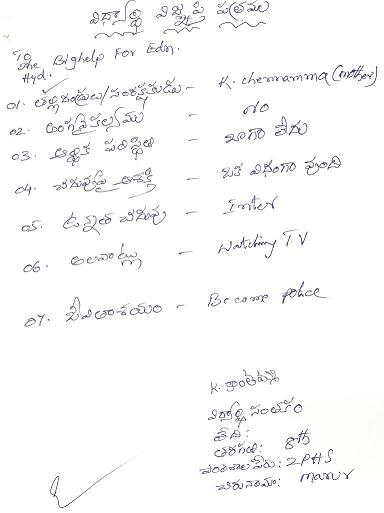 విద్యార్థి విజ్ఞప్తి పత్రము
To
The Bighelp For Edn.
Hyd.
01. తల్లిదండ్రులు/సంరక్షకుడు - K. chennamma (mother)
02. అంగవైకల్యము - NO
03. ఆర్థిక పరిస్థితి - బాగా లేదు
04. చదువుపై ఆసక్తి - ఒక విధంగా వుంది
05. ఉన్నత చదువు - Inter
06. అలవాట్లు - Watching TV
07. జీవితాశయం - Became police
K.
విద్యార్థి సంతకం
తేది:
తరగతి: 8th
పాఠశాల పేరు: ZPHS
చిరునామా: Manur